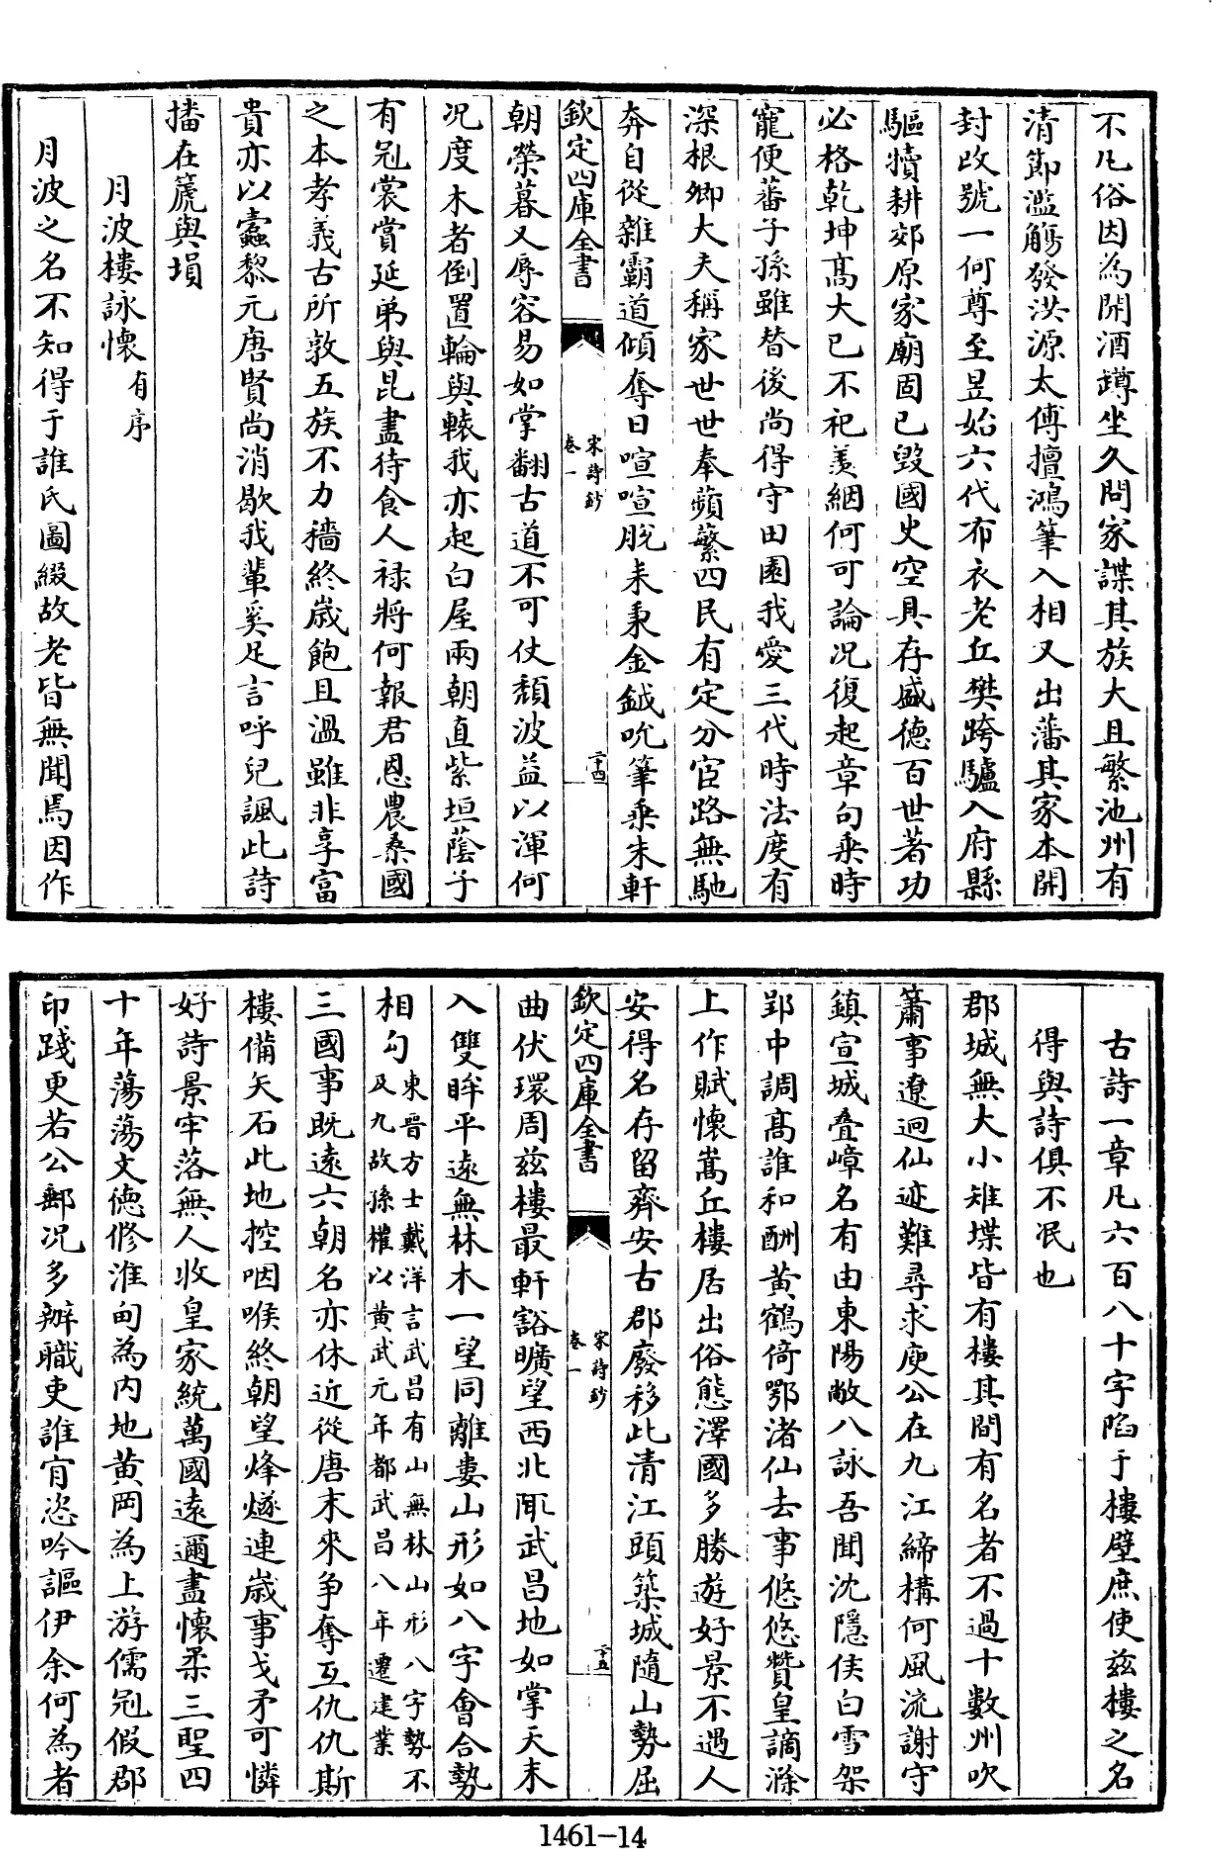 不凡俗因為開酒罇坐久問家諜其族大且繁池州有
清節濫觴發洪源太傅擅鴻筆入相又出藩其家本開
封改號一何尊至昱始六代布衣老丘樊跨驢入府縣
驅犢耕郊原家廟固已毀國史空具存盛德百世著功
必格乾坤髙大巳不祀羙絪何可論况復起章句乗時
寵便蕃子孫雖替後尚得守田園我愛三代時法度有
深根卿大夫稱家世世奉蘋蘩四民有定分宦路無馳
奔自從雜霸道傾奪日喧喧脱耒秉金鉞吮筆乗朱軒
欽定四庫全書
宋詩鈔
卷一
二十四
朝榮暮又辱容易如掌翻古道不可仗頽波益以渾何
况度木者倒置輪與轅我亦起白屋兩朝直紫垣蔭子
有冠裳賞延弟與昆盡待食人禄將何報君恩農桑國
之本孝義古所敦五族不力穡終歲飽且温雖非享富
貴亦以蠹黎元唐賢尚消歇我輩奚足言呼兒諷此詩
播在箎與塤
月波樓詠懷有序
月波之名不知得于誰氏圖綴故老皆無聞焉因作
古詩一章凡六百八十字陷于樓壁庶使兹樓之名
得與詩俱不泯也
郡城無大小雉堞皆有樓其間有名者不過十數州吹
簫事遼迥仙迹難尋求庾公在九江締構何風流謝守
鎮宣城叠嶂名有由東陽敞八詠吾聞沈隱侯白雪架
郢中調髙誰和酬黄鶴倚鄂渚仙去事悠悠贊皇謫滁
上作賦懷嵩丘樓居出俗態澤國多勝遊好景不遇人
安得名存留齊安古郡廢移此清江頭築城隨山勢屈
欽定四庫全書
宋詩鈔
卷一
二十五
曲伏環周兹樓最軒豁曠望西北陬武昌地如掌天末
入雙眸平遠無林木一望同離婁山形如八字會合勢
相勾東晋方士戴洋言武昌有山無林山形八字勢不及九故孫權以黄武元年都武昌八年遷建業
三國事既遠六朝名亦休近從唐末來争奪互仇仇斯
樓備矢石此地控咽喉終朝望烽燧連歲事戈矛可憐
好詩景牢落無人收皇家統萬國遠邇盡懷柔三聖四
十年蕩蕩文德修淮甸為内地黄岡為上游儒冠假郡
印踐更若公郵况多辦職吏誰肎恣吟謳伊余何為者
1461-14